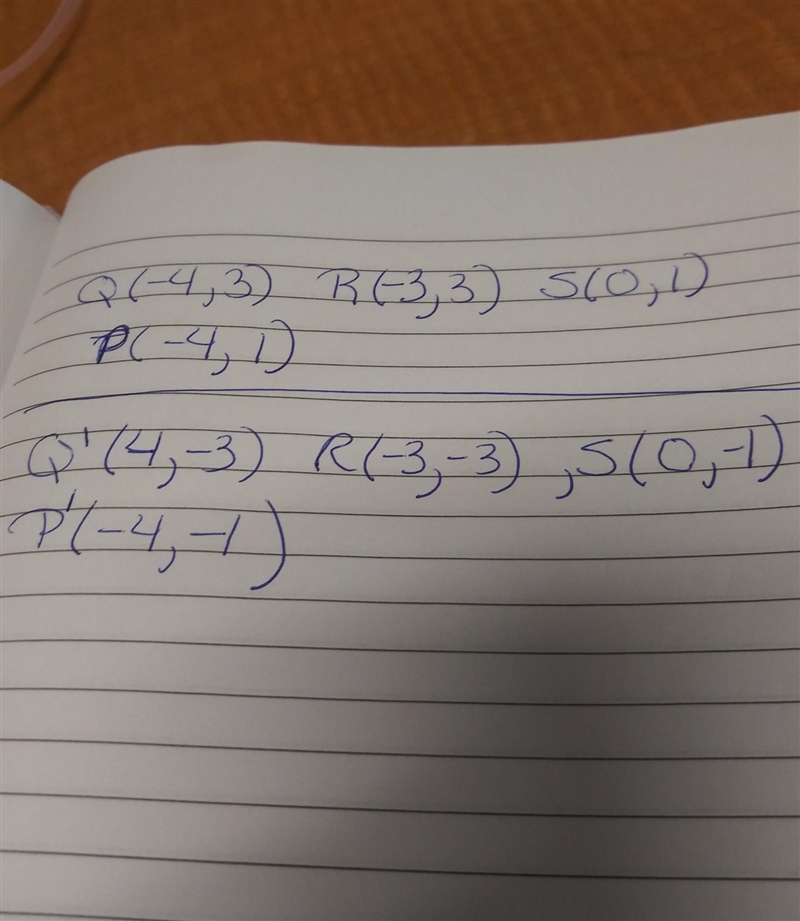 Q(-4,3) R(-3,3) S(0,1)
P(-4,1)
Q'(4,-3) R(-3,-3) ,S(0,-1)
P'(-4,-1)